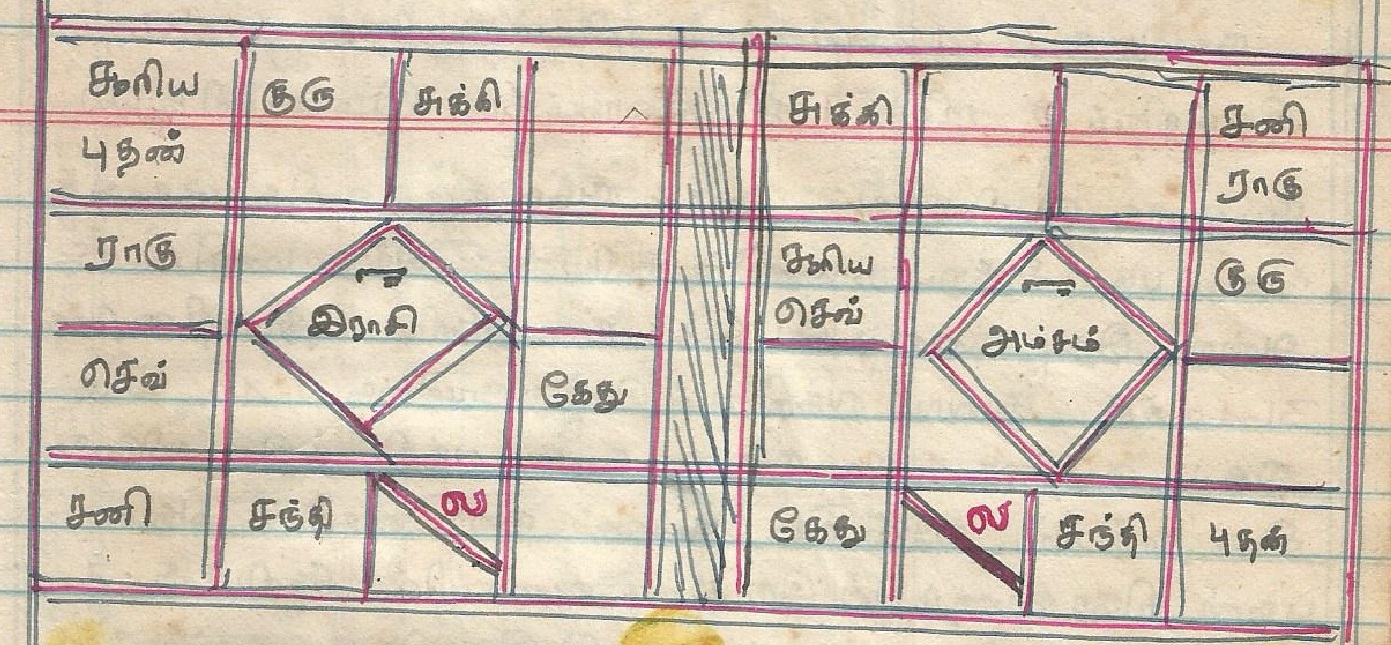 சூரிய
புதன்
குரு
சுக்கி
ராகு
செவ்
இராசி
கேது
சனி
சந்தி
ல
சுக்கி
சனி
ராகு
சூரிய
செவ்
அம்சம்
குரு
கேது
ல
சந்தி
புதன்